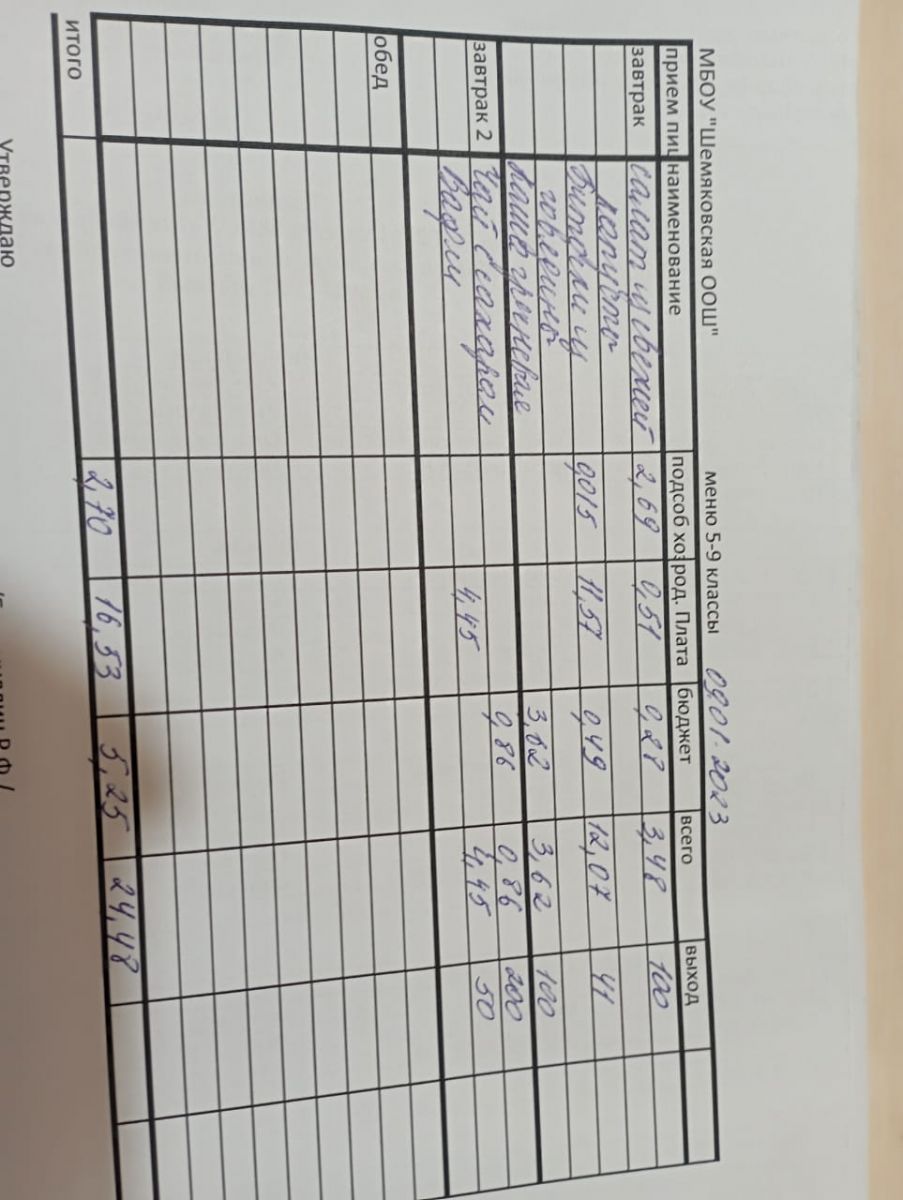 МБОУ "Шемяковская ООШ" меню 5-9 классы 09.01.2023
прием пищ наименование подсоб хоз род. Плата бюджет всего выход
завтрак салат из свежей 2,69 0,51 0,28 3,48 100
капусты
из 0,015 11,57 0,49 12,07 41
говядины
каша гречневая 3,62 3,62 100
завтрак 2 Чай с сахаром 0,86 0,86 200
Вафли 4,45 4,45 50
обед
итого 2,70 16,53 5,25 24,48
Утверждаю